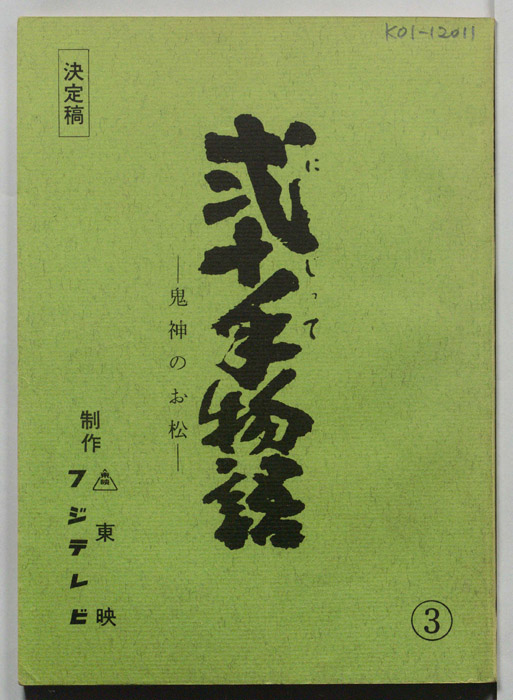 K01-12011
決定稿
弐十手物語
にじって
―鬼神のお松―
制作
東映
東映
フジテレビ
③